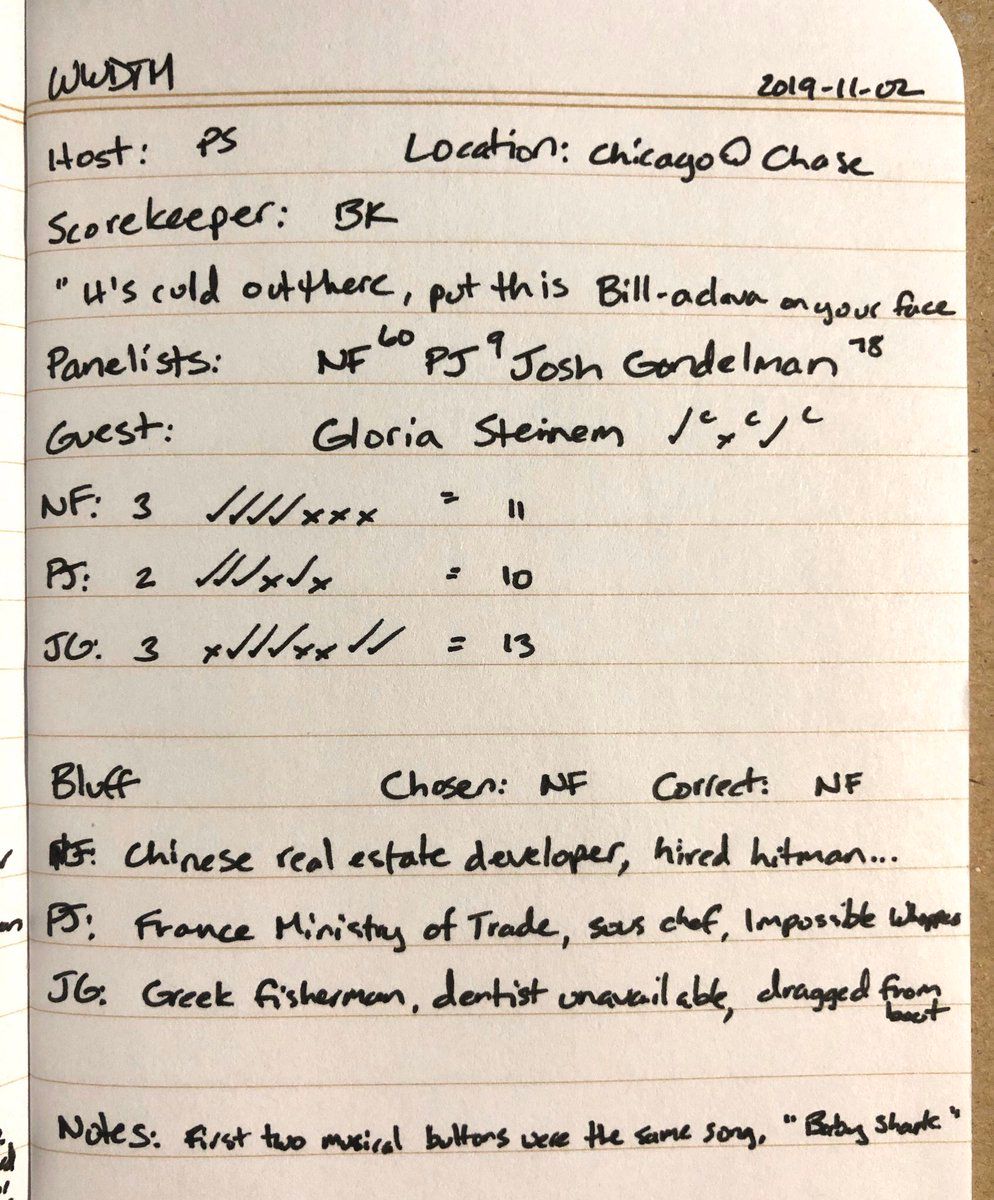 WWDTM 2019-11-02
Host: PS Location: Chicago @ Chase
Scorekeeper: BK
" It's cold out there, put this Bill-aclava on your face
Panelists: NF 60 PJ 9 Josh Gondelman 78
Guest: Gloria Steinem ✓c x c ✓ c
NF: 3 ✓✓✓✓xxx = 11
PJ: 2 ✓✓✓x✓x = 10
JG: 3 x✓✓✓xx✓✓ = 13
Bluff Chosen: NF Correct: NF
NF: Chinese real estate developer, hired hitman...
PJ: France Ministry of Trade, sous chef, Impossible Whopper
JG: Greek fisherman, dentist unavailable, dragged from
boat
Notes: First two musical buttons were the same song, "Baby Shark"